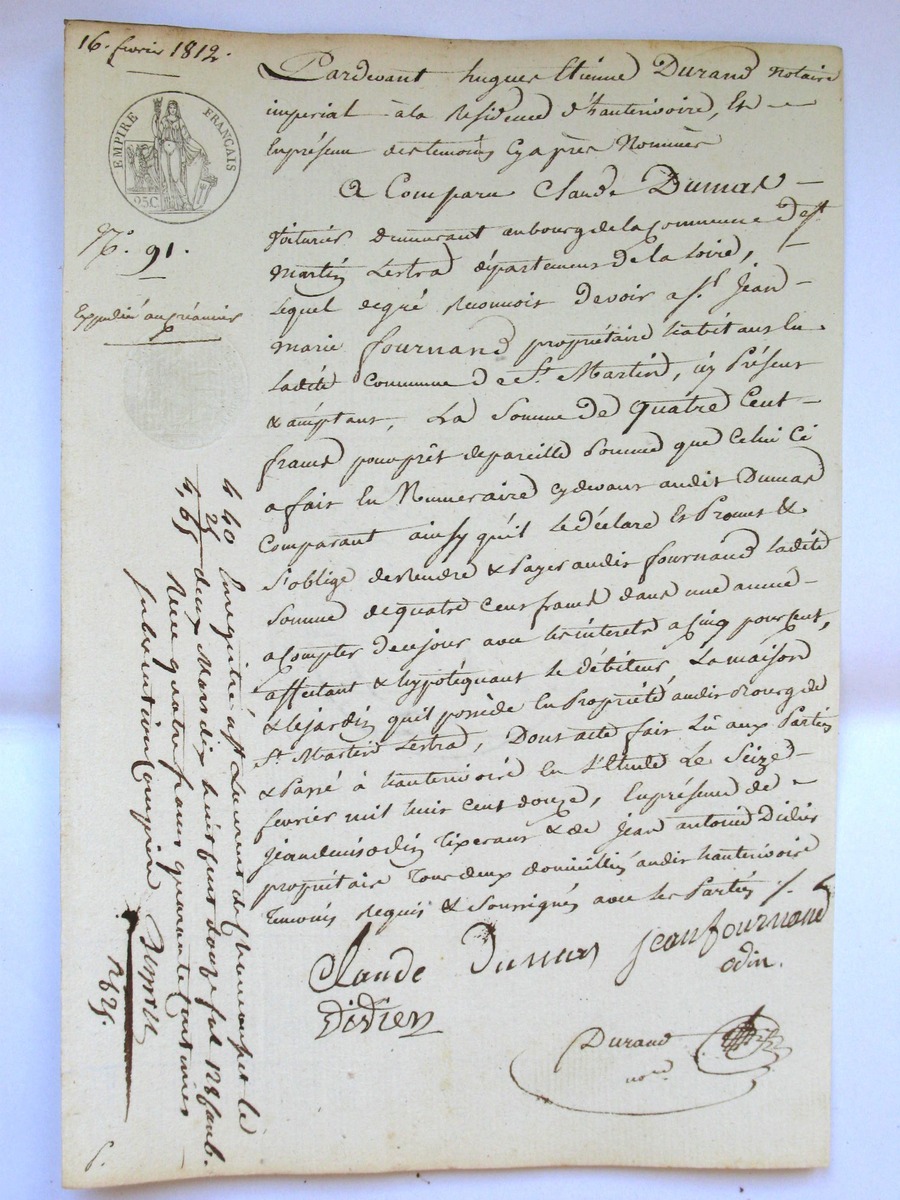 16. fevrier 1812.
EMPIRE FRANÇAIS
25C.
N.° 91.
Expedié au créancier
Pardevant hugues Etienne Durand notaire
imperial à la Residence d'hauterivoire, Et
En présence des temoins Cyaprès Nommés
A Comparu Claude Dumas
Voiturier demeurant au bourg de la Commune de St
Martin Lestra département de la Loire,
lequel de gré Reconnoit devoir a Sr. Jean
marie fournand propriétaire habitant En
ladite Commune de St. Martin, icy Présent
& acceptant, La Somme de quatre Cent
francs pour prêt de pareille Somme que Celui Ci
a fait En Numeraire cydevant audit Dumas
Comparant ainsy qu'il le déclare Et Promet &
S'oblige de Rendre & Payer audit fournand ladite
Somme de quatre Cent francs dans une année
a Compter de ce jour avec les intérets a Cinq pour cent,
affectant & hypotéquant le débiteur La maison
& le jardin qu'il possède en Propriété audit Bourg de
St. Martin Lestra, Dont acte fait Lû aux Parties
& Passé à hauterivoire En l'Etude Le Seize
fevrier mil huit Cent douze, En présence de
Jean denis odin tixerant & de Jean antoine Didier
propriétaire Tous deux domicilliés audit hauterivoire
Temoins Requis & Soussignés avec les Parties /.
Claude Dumas Jean fournand
odin.
Didier
Durand
nore
4 40 Enregistré à St Laurent de Chamousset le
25 deux Mars dix huit cent douze fol. 128
4,65 Recu quatre francs quarante Centimes
Subvention Comprise